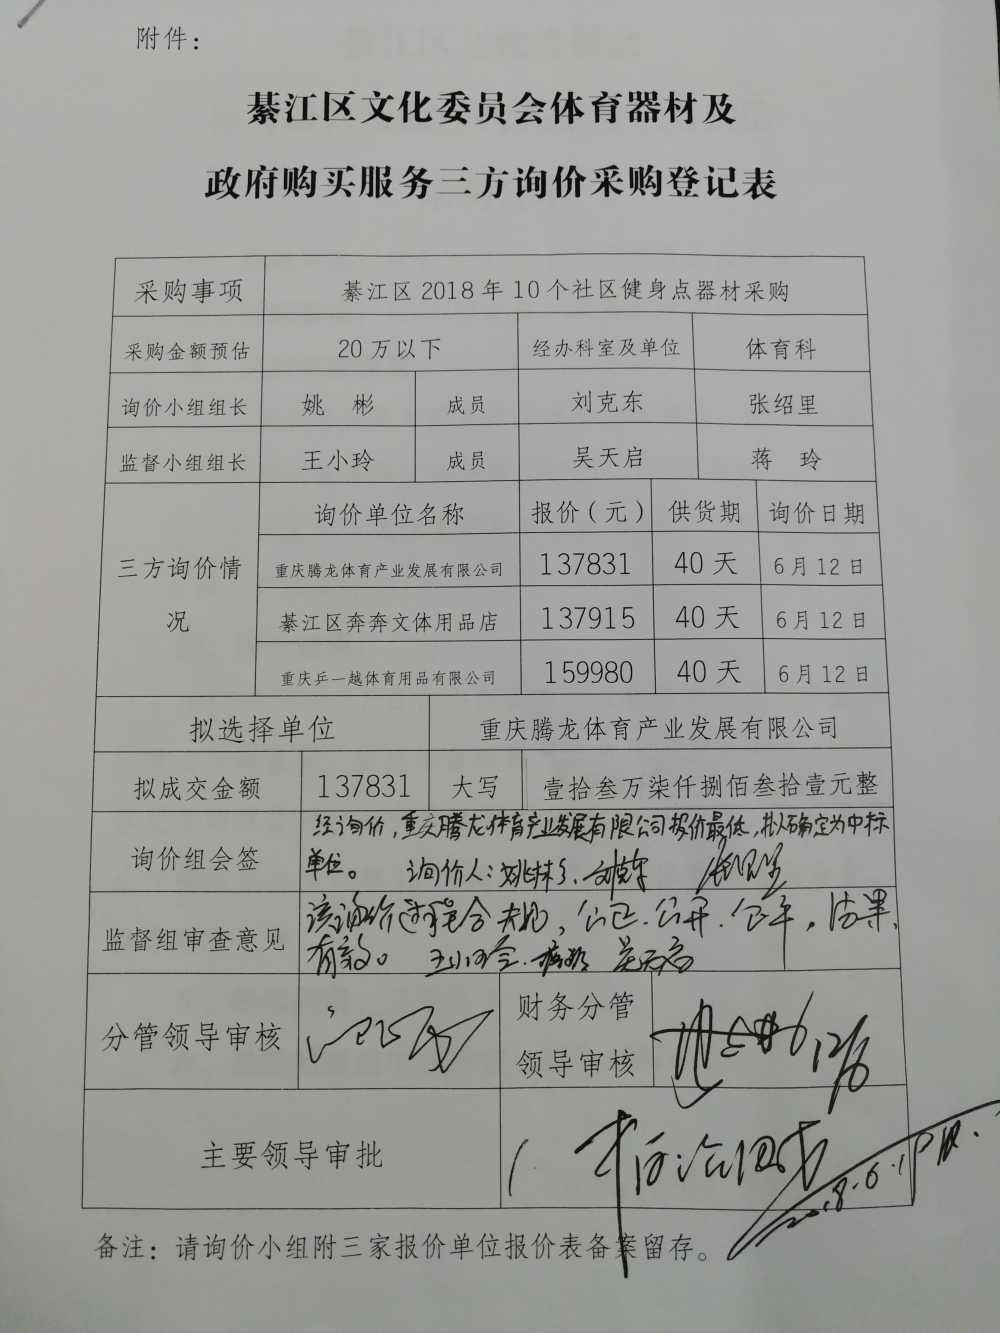 附件：
綦江区文化委员会体育器材及
政府购买服务三方询价采购登记表
采购事项 綦江区 2018 年 10 个社区健身点器材采购
采购金额预估 20 万以下 经办科室及单位 体育科
询价小组组长 姚 彬 成员 刘克东 张绍里
监督小组组长 王小玲 成员 吴天启 蒋 玲
三方询价情况 询价单位名称 报价（元） 供货期 询价日期
重庆腾龙体育产业发展有限公司 137831 40 天 6 月 12 日
綦江区奔奔文体用品店 137915 40 天 6 月 12 日
重庆乒一越体育用品有限公司 159980 40 天 6 月 12 日
拟选择单位 重庆腾龙体育产业发展有限公司
拟成交金额 137831 大写 壹拾叁万柒仟捌佰叁拾壹元整
询价组会签 经询价，重庆腾龙体育产业发展有限公司报价最低，拟确定为中标
单位。 询价人：姚彬 刘克东
监督组审查意见 该询价过程合规，公正.公开.公平，结果
有效。 王小玲. 蒋玲 吴天启
分管领导审核 财务分管
领导审核 12/6
主要领导审批
2018.6.12
备注：请询价小组附三家报价单位报价表备案留存。